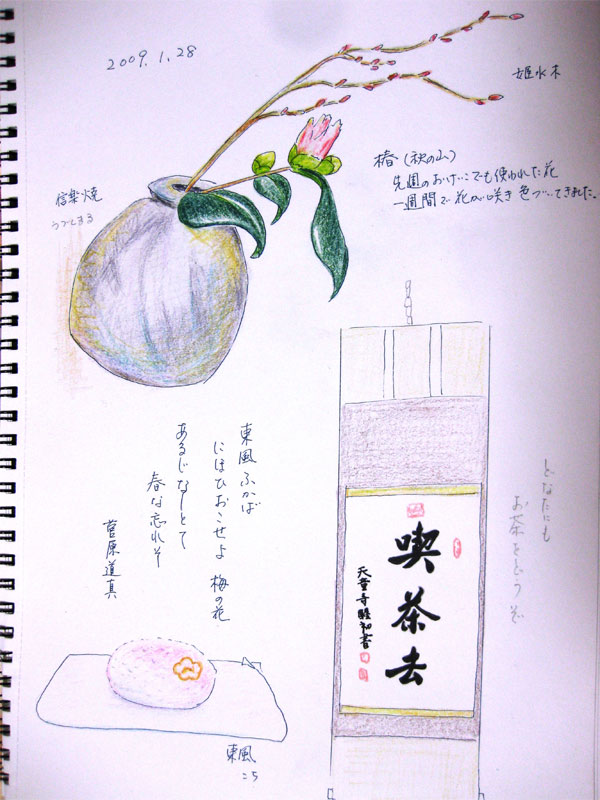 2009.1.28
姫水木
椿(秋の山)
先週のおけいこでも使われた花
一週間で花が咲き色づいてきました。
信楽焼
うづくまる
東風ふかば
にほひおこせよ 梅の花
あるじなしとて
春な忘れそ
菅原道真
どなたにも
お茶をどうぞ
喫茶去
東風
こち